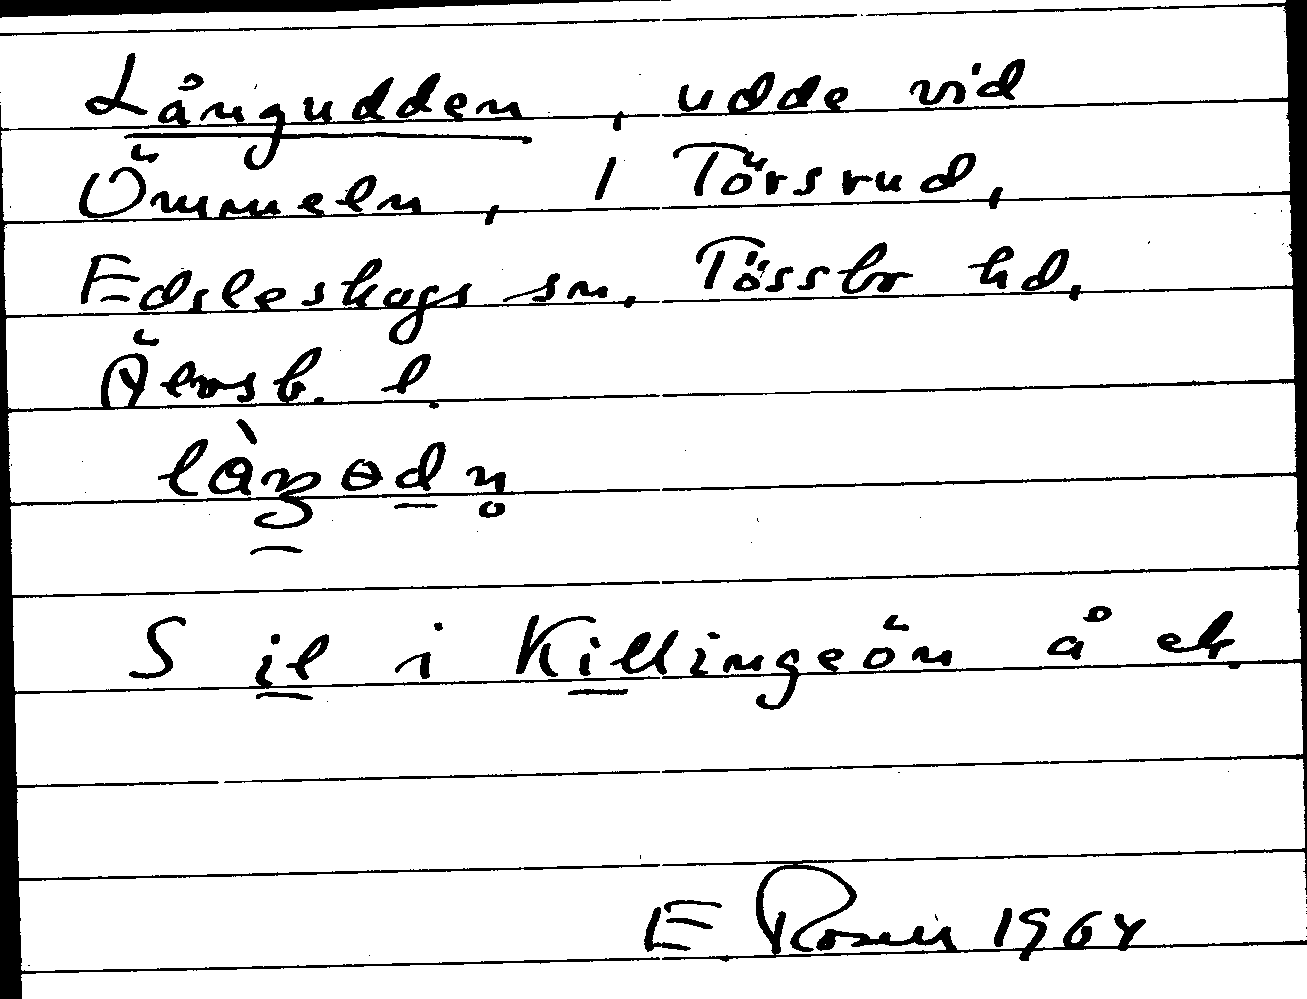 Långudden, udde vid
Ömmeln, 1 Törsrud,
Edsleskogs sn. Tössbo hd.
Älvsb. l.
S il i Killingeön å ek.
E Rosell 1964